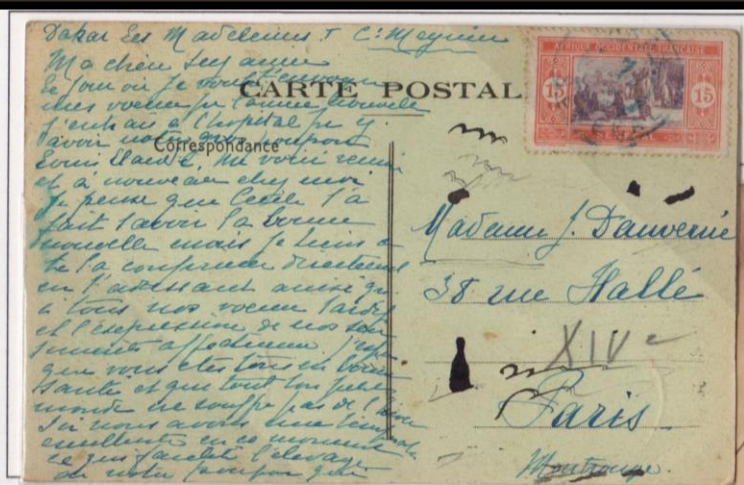 Dakar Les Madeleines I C. Meynier
Ma chère Suzanne
Le jour où je vous envoyais
mes voeux pr l'année nouvelle
j'entrais à l'hôpital pr y
avoir notre gros poupon
Louis Claude. Me voici revenue
et à nouveau chez moi
Je pense que Cécile t'a
fait savoir la bonne
nouvelle mais je tiens à
te la confirmer directement
en t'adressant ainsi qu'
à tous nos voeux tardifs
et l'expression de nos
sentiments affectueux J'espère
que vous êtes tous en bonne
santé et que tout ton petit
monde ne souffre pas de l'hiver
Ici nous avons une température
excellente en ce moment
ce qui facilite l'élevage
de notre poupon qui
CARTE POSTAL
Correspondance
AFRIQUE OCCIDENTALE FRANÇAISE
15
15
Madame J. Dauvernié
38 rue Hallé
XIVe
Paris
Montrouge.